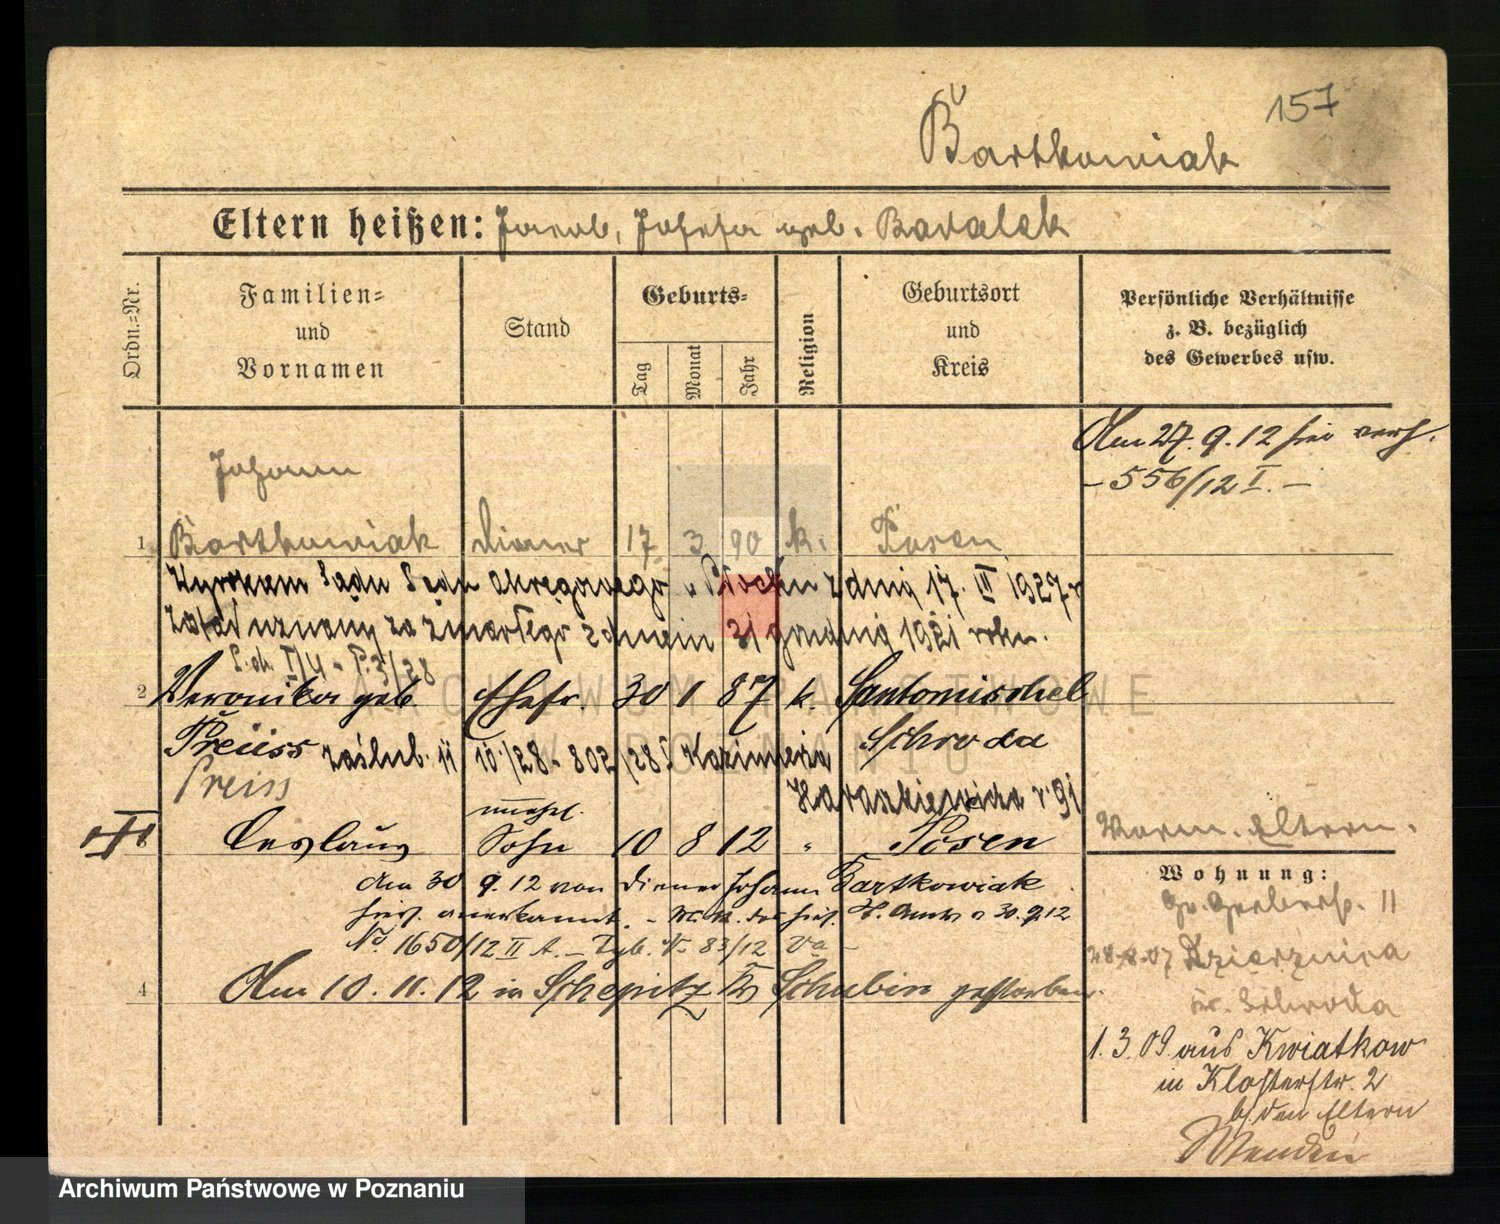 157
Bartkowiak
Eltern heißen: Jacob, Josefa geb. Bavalek
Ordn.=Nr.
Familien=
und
Vornamen
Stand
Geburts=
Tag
Monat
Jahr
Religion
Geburtsort
und
Kreis
Persönliche Verhältnisse
z. B. bezüglich
des Gewerbes usw.
Am 27. 9. 12 hier verh.
- 556/12 I. -
Johann
1 Bartkowiak Diener 17 3 90 k. Posen
Wyrokiem Sądu Okręgowego z dnia 17. III 1927 r
został uznany za zmarłego z dniem 31 grudnia 1921 roku.
2 Veronika geb. Ehefr. 30 1 87 k. Santomischel
Preuss Schroda
zaślub. 11 10./28 - 802/28 Kazimierza
Preiss
Haraszkiewicza r. 91
unehel.
Ceslaus Sohn 10 8 12 " Posen
am 30. 9. 12 von Diener Johann Bartkowiak
hies. anerkannt. d. hies. St. Amts v 30. 9. 12
No 1650/12 II A. - Tgb. V 83/12
4 Am 10. 11. 12 in Schepitz Kr Schubin gestorben.
Vorm. Eltern.
Wohnung:
Gr. Gerberstr. 11
28.8.07 Dzierznica
Kr. Schroda
1. 3. 09. aus Kwiatkow
in Klosterstr. 2
b/ den Eltern
ARCHIWUM PAŃSTWOWE
W POZNANIU
Archiwum Państwowe w Poznaniu